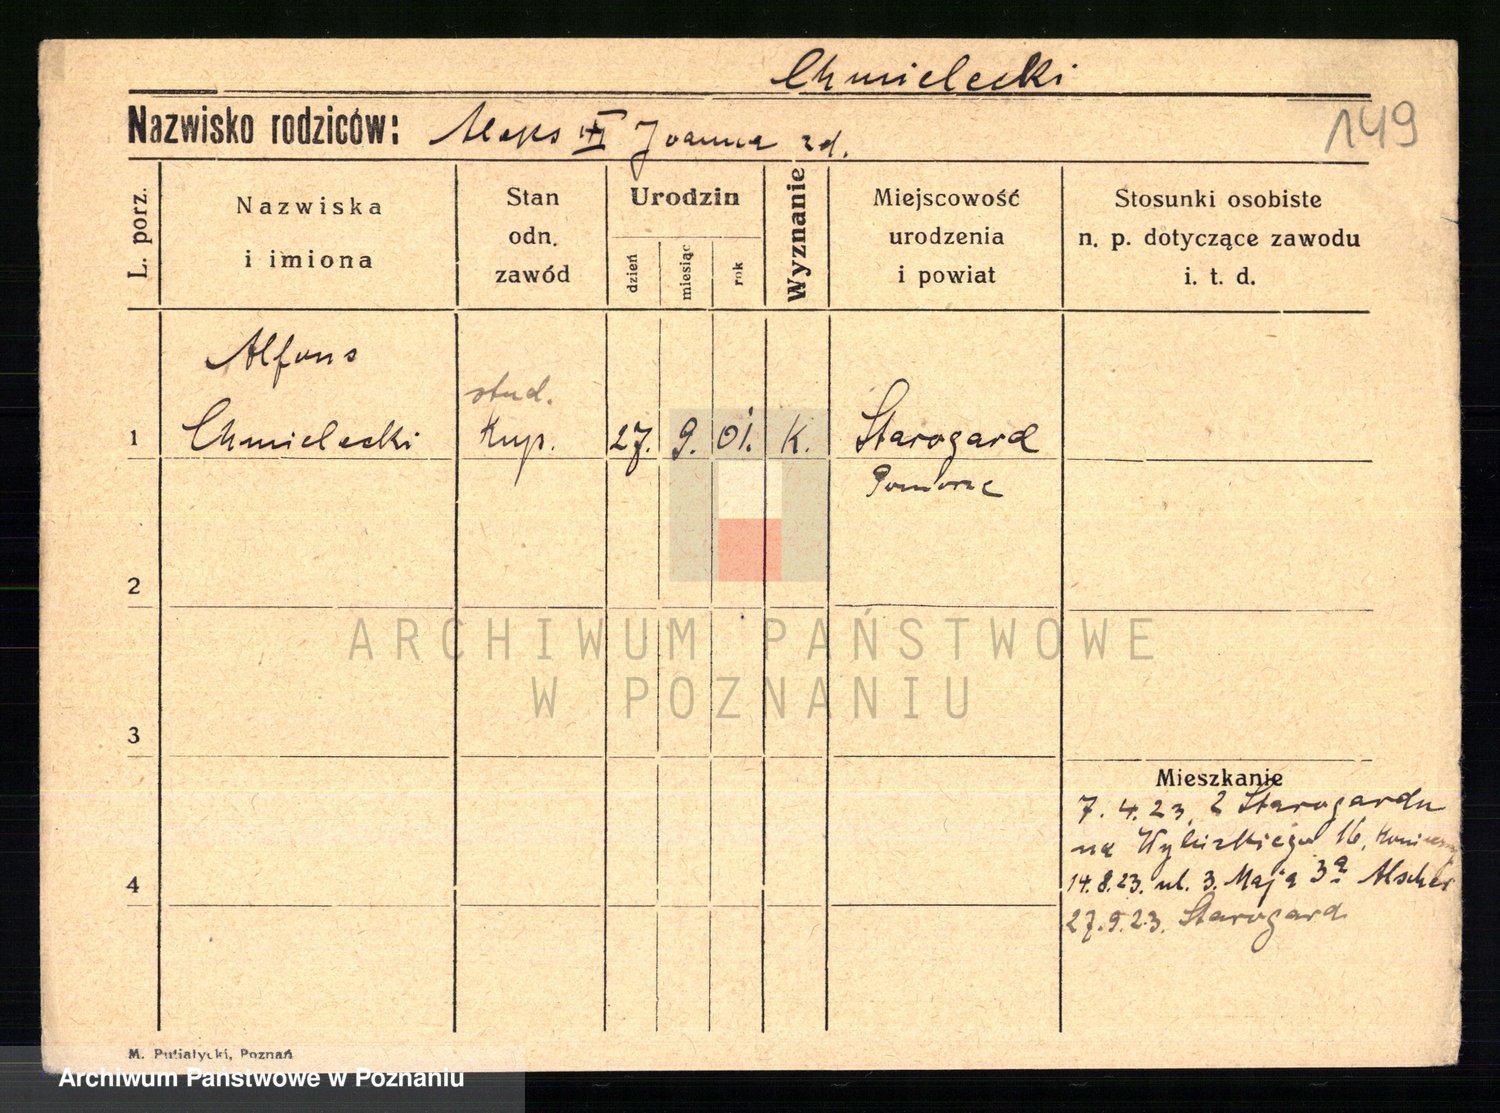 Chmielecki
149
Nazwisko rodziców: Aleks Joanna zd.
L. porz.
Nazwiska
i imiona
Stan
odn.
zawód
Urodzin
dzień
miesiąc
rok
Wyznanie
Miejscowość
urodzenia
i powiat
Stosunki osobiste
n. p. dotyczące zawodu
i. t. d.
Alfons
stud.
1 Chmielecki Kup. 27. 9. 01. K. Starogard
Pomorze
2
ARCHIWUM PAŃSTWOWE
W POZNANIU
3
Mieszkanie
7. 4. 23, z Starogardu
na Wybickiego 16,
4
14. 8. 23. ul. 3. Maja 3a Alscher
27. 9. 23. Starogard
M. Putiatycki, Poznań
Archiwum Państwowe w Poznaniu